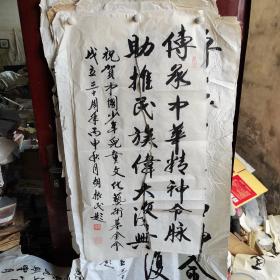 傳承中華精神命脉
助推民族偉大復興
祝賀中國少年兒童文化藝術基金會
成立三十周年丙申秋月胡振民題